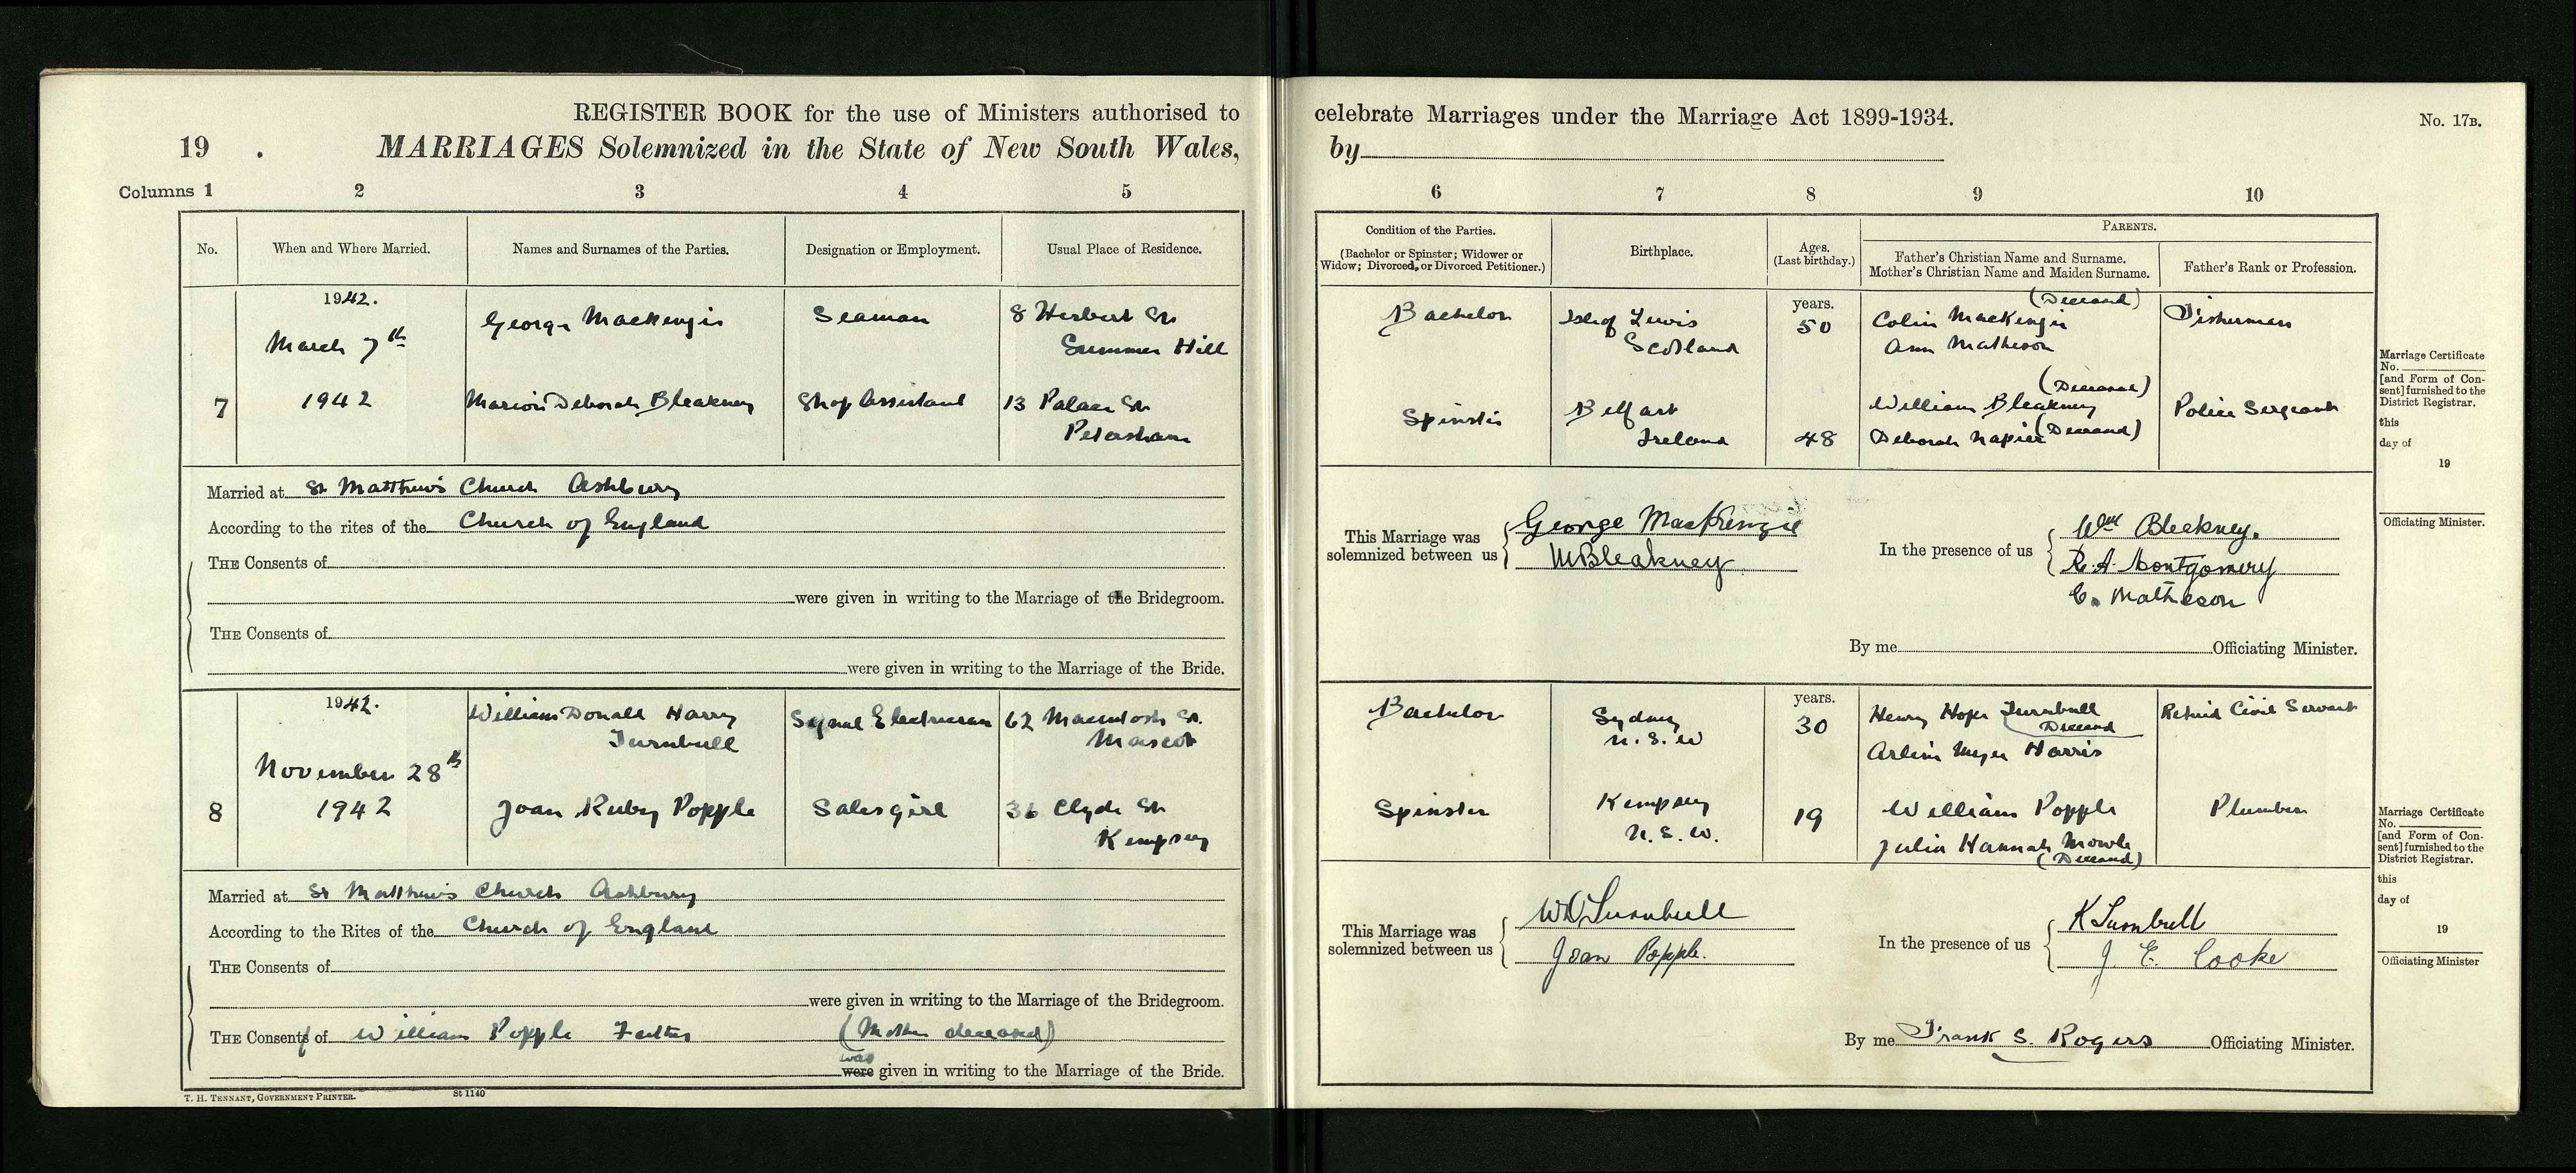 REGISTER BOOK for the use of Ministers authorised to celebrate Marriages under the Marriage Act 1899-1934.
No. 17B.
19 . MARRIAGES Solemnized in the State of New South Wales, by
Columns 1 2 3 4 5 6 7 8 9 10
No. When and Where Married. Names and Surnames of the Parties. Designation or Employment. Usual Place of Residence.
Condition of the Parties.
(Bachelor or Spinster; Widower or
Widow; Divorced, or Divorced Petitioner.)
Birthplace.
Ages.
(Last birthday.)
PARENTS.
Father's Christian Name and Surname.
Mother's Christian Name and Maiden Surname.
Father's Rank or Profession.
7
1942.
March 7th
1942
George Mackenzie
Seaman
8 Herbert St
Summer Hill
Bachelor
Isle of Lewis
Scotland
years.
50
(Deceased)
Colin MacKenzie
Ann Matheson
Fisherman
Marion Deborah Bleakney
Shop Assistant
13 Palace St
Petersham
Spinster
Belfast
Ireland
48
(Deceased)
William Bleakney
Deborah Napier (Deceased)
Police Sergeant
Married at St Matthew's Church Ashbury
According to the rites of the Church of England
THE Consents of
were given in writing to the Marriage of the Bridegroom.
THE Consents of
were given in writing to the Marriage of the Bride.
This Marriage was
solemnized between us
George MacKenzie
M Bleakney
In the presence of us
Wm Bleakney.
R. A. Montgomery
C. Matheson
By me Officiating Minister.
Marriage Certificate
No.
[and Form of Con-
sent] furnished to the
District Registrar.
this
day of
19
Officiating Minister.
8
1942.
November 28th
1942
William Donald Harry
Turnbull
Signal Electrician
62 Macintosh St.
Mascot
Bachelor
Sydney
N. S. W
years.
30
Henry Hope Turnbull
Deceased
Harris
Retired Civil Servant
Joan Ruby Popple
Salesgirl
36 Clyde St
Kempsey
Spinster
Kempsey
N. S. W.
19
William Popple
Julia Hannah Mowle
(Deceased)
Plumber
Married at St Matthew's Church Ashbury
According to the Rites of the Church of England
THE Consents of
were given in writing to the Marriage of the Bridegroom.
THE Consent of William Popple Father (Mother deceased)
was
were given in writing to the Marriage of the Bride.
This Marriage was
solemnized between us
WD Turnbull
Joan Popple.
In the presence of us
K Turnbull
J. E. Cooke
By me Frank S. Rogers Officiating Minister.
Marriage Certificate
No.
[and Form of Con-
sent] furnished to the
District Registrar.
this
day of
19
Officiating Minister
T. H. TENNANT, GOVERNMENT PRINTER.
St 1140